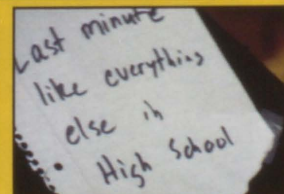 Last minute
like everything
else in
High School